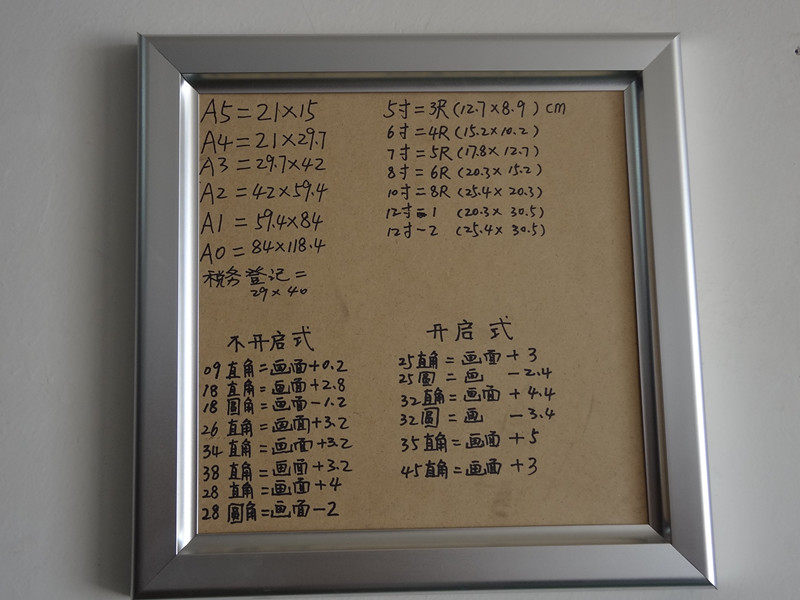 A5=21×15
A4=21×29.7
A3=29.7×42
A2=42×59.4
A1=59.4×84
A0=84×118.4
税务登记=
29×40
5寸=3R(12.7×8.9)cm
6寸=4R(15.2×10.2)
7寸=5R(17.8×12.7)
8寸=6R(20.3×15.2)
10寸=8R(25.4×20.3)
12寸-1 (20.3×30.5)
12寸-2 (25.4×30.5)
不开启式
09直角=画面+0.2
18直角=画面+2.8
18圓角=画面-1.2
26直角=画面+3.2
34直角=画面+3.2
38直角=画面+3.2
28直角=画面+4
28圓角=画面-2
开启式
25直角=画面+3
25圓=画 -2.4
32直角=画面+4.4
32圓=画 -3.4
35直角=画面+5
45直角=画面+3